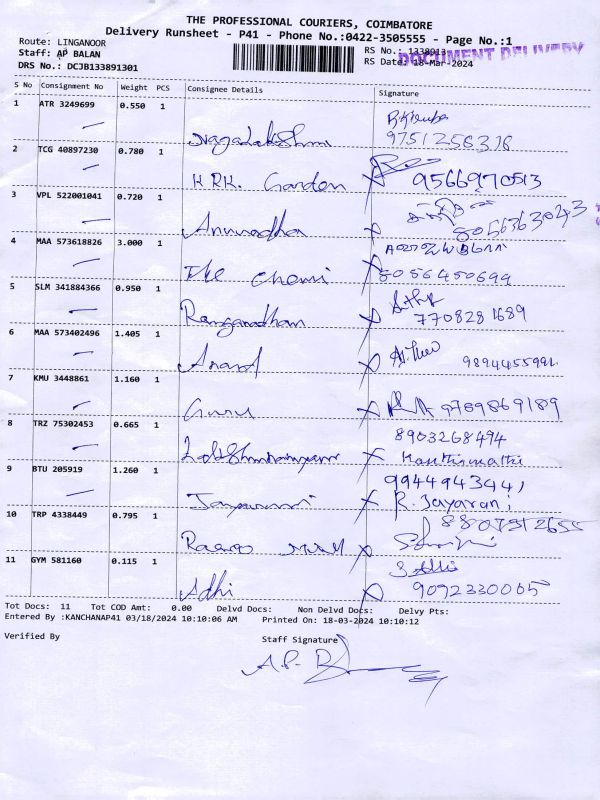 THE PROFESSIONAL COURIERS, COIMBATORE
Delivery Runsheet - P41 - Phone No.:0422-3505555 - Page No.:1
Route: LINGANOOR
Staff: AP BALAN
DRS No.: DCJB133891301
RS No.: 1338913
RS Date: 18-Mar-2024
DOCUMENT DELIVERY
S No Consignment No Weight PCS Consignee Details Signature
1 ATR 3249699 0.550 1
Nagalakshmi 9751256318
2 TCG 40897230 0.780 1
K RK. Garden 9566970513
3 VPL 522001041 0.720 1
Anuradha 8056363043
4 MAA 573618826 3.000 1
The Chemi 8056450699
5 SLM 341884366 0.950 1
Ranganadhan 7708281689
6 MAA 573402496 1.405 1
Anand 9894455992
7 KMU 3448861 1.160 1
Guru 9789869189
8 TRZ 75302453 0.665 1
8903268494
9 BTU 205919 1.260 1
9944943441
R. Jayarani
10 TRP 4338449 0.795 1
8807512655
11 GYM 581160 0.115 1
Adhi 9092330065
Tot Docs: 11 Tot COD Amt: 0.00 Delvd Docs: Non Delvd Docs: Delvy Pts:
Entered By :KANCHANAP41 03/18/2024 10:10:06 AM Printed On: 18-03-2024 10:10:12
Verified By Staff Signature